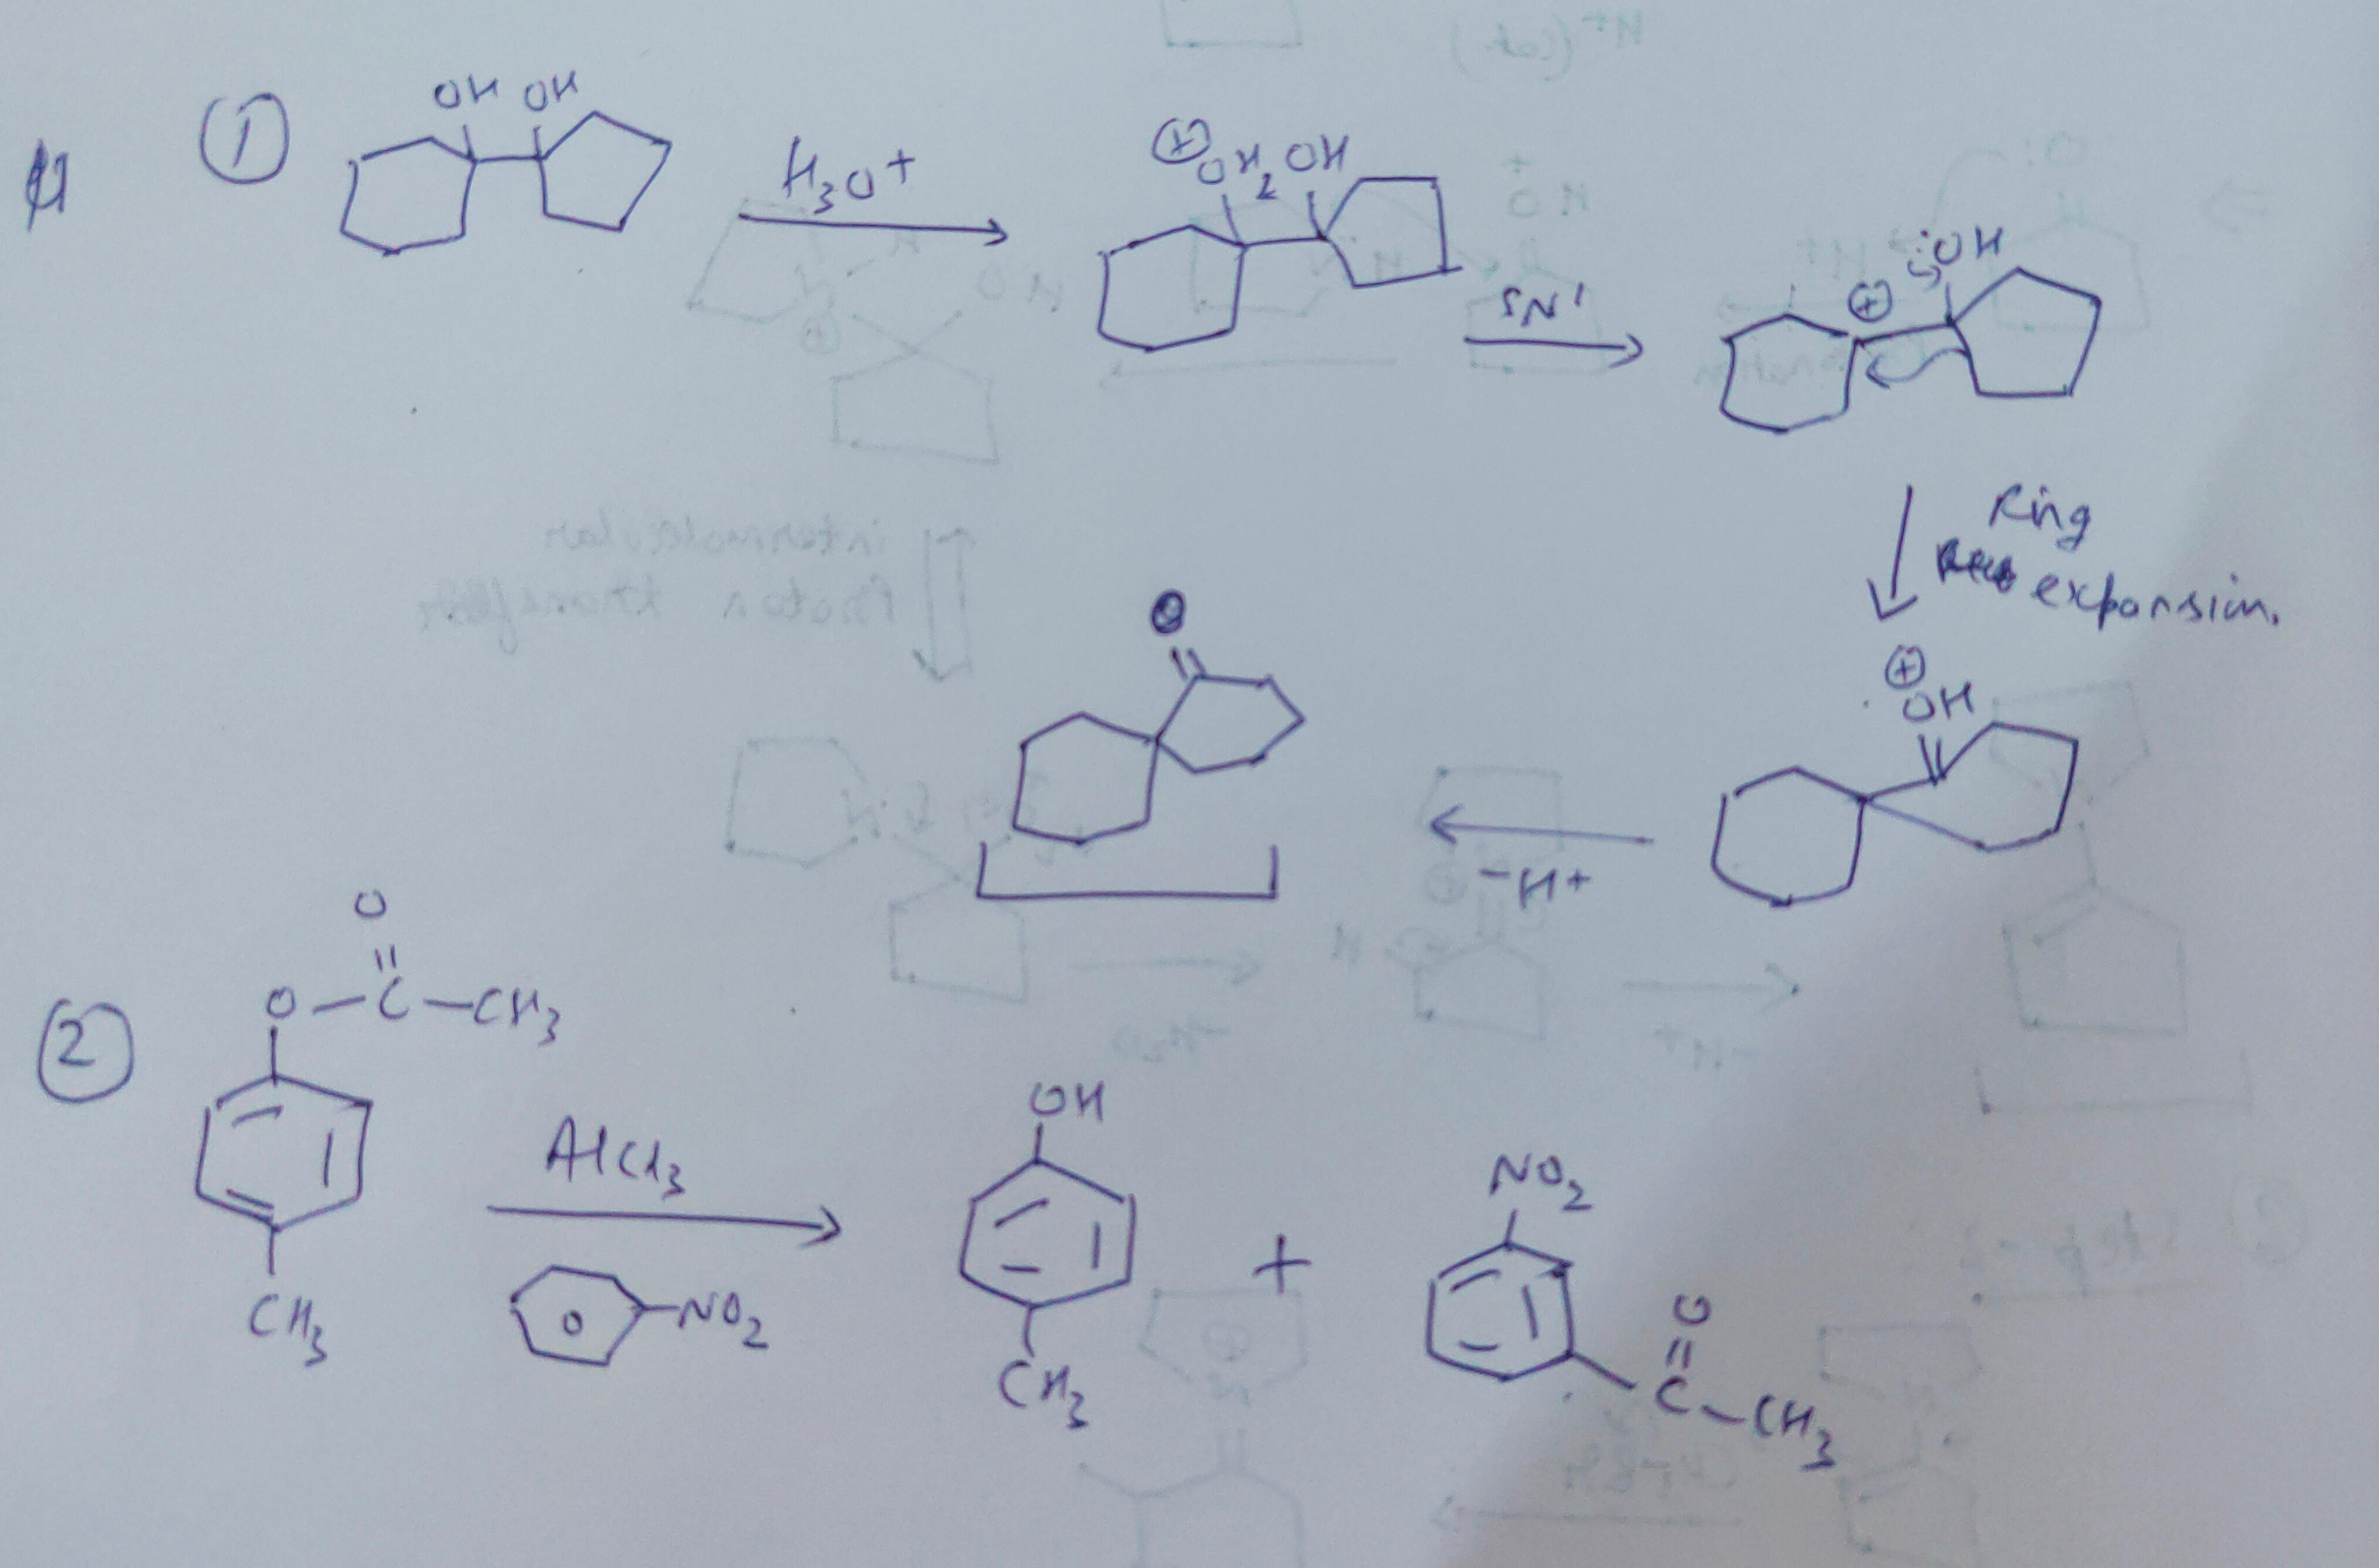 ①
OH OH
H₃O⁺
⊕
OH₂ OH
SN¹
⊕ :OH
Ring
expansion.
⊕
OH
-H⁺
O
②
O
O-C-CH₃
CH₃
AlCl₃
NO₂
OH
CH₃
+
NO₂
O
C-CH₃